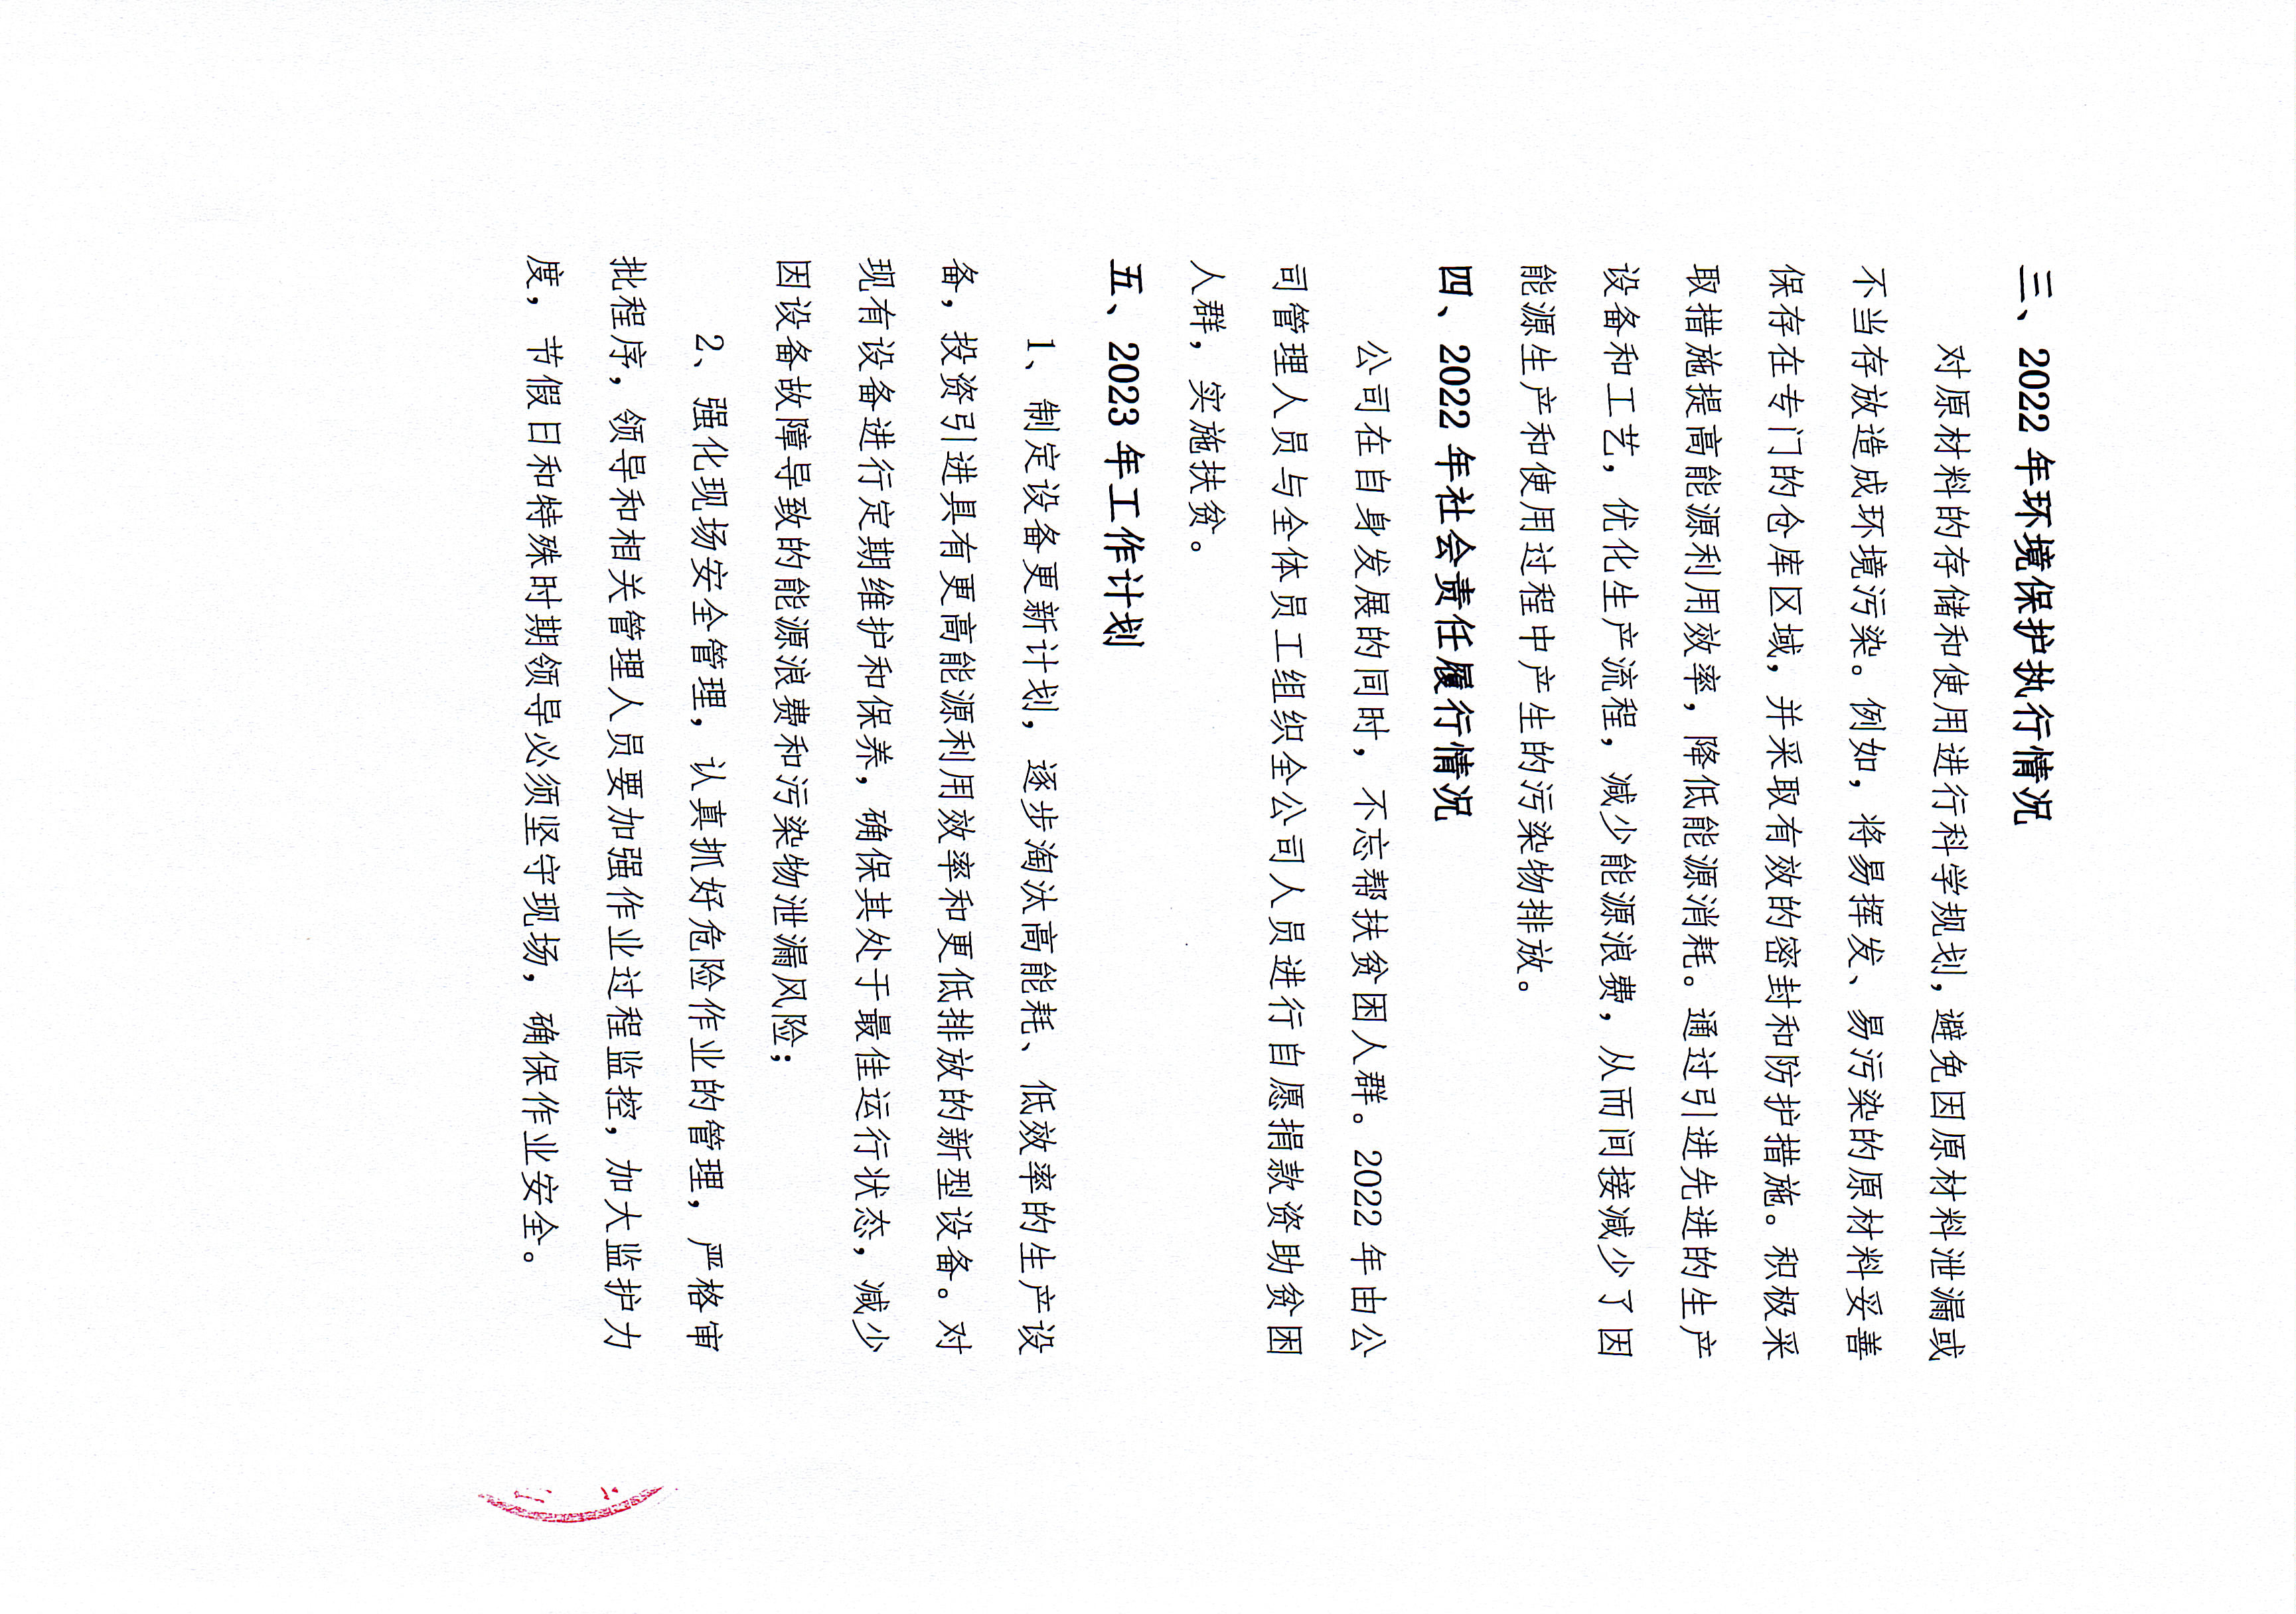 三、2022 年环境保护执行情况
对原材料的存储和使用进行科学规划，避免因原材料泄漏或
不当存放造成环境污染。例如，将易挥发、易污染的原材料妥善
保存在专门的仓库区域，并采取有效的密封和防护措施。积极采
取措施提高能源利用效率，降低能源消耗。通过引进先进的生产
设备和工艺，优化生产流程，减少能源浪费，从而间接减少了因
能源生产和使用过程中产生的污染物排放。
四、2022 年社会责任履行情况
公司在自身发展的同时，不忘帮扶贫困人群。2022 年由公
司管理人员与全体员工组织全公司人员进行自愿捐款资助贫困
人群，实施扶贫。
五、2023 年工作计划
1、制定设备更新计划，逐步淘汰高能耗、低效率的生产设
备，投资引进具有更高能源利用效率和更低排放的新型设备。对
现有设备进行定期维护和保养，确保其处于最佳运行状态，减少
因设备故障导致的能源浪费和污染物泄漏风险；
2、强化现场安全管理，认真抓好危险作业的管理，严格审
批程序，领导和相关管理人员要加强作业过程监控，加大监护力
度，节假日和特殊时期领导必须坚守现场，确保作业安全。